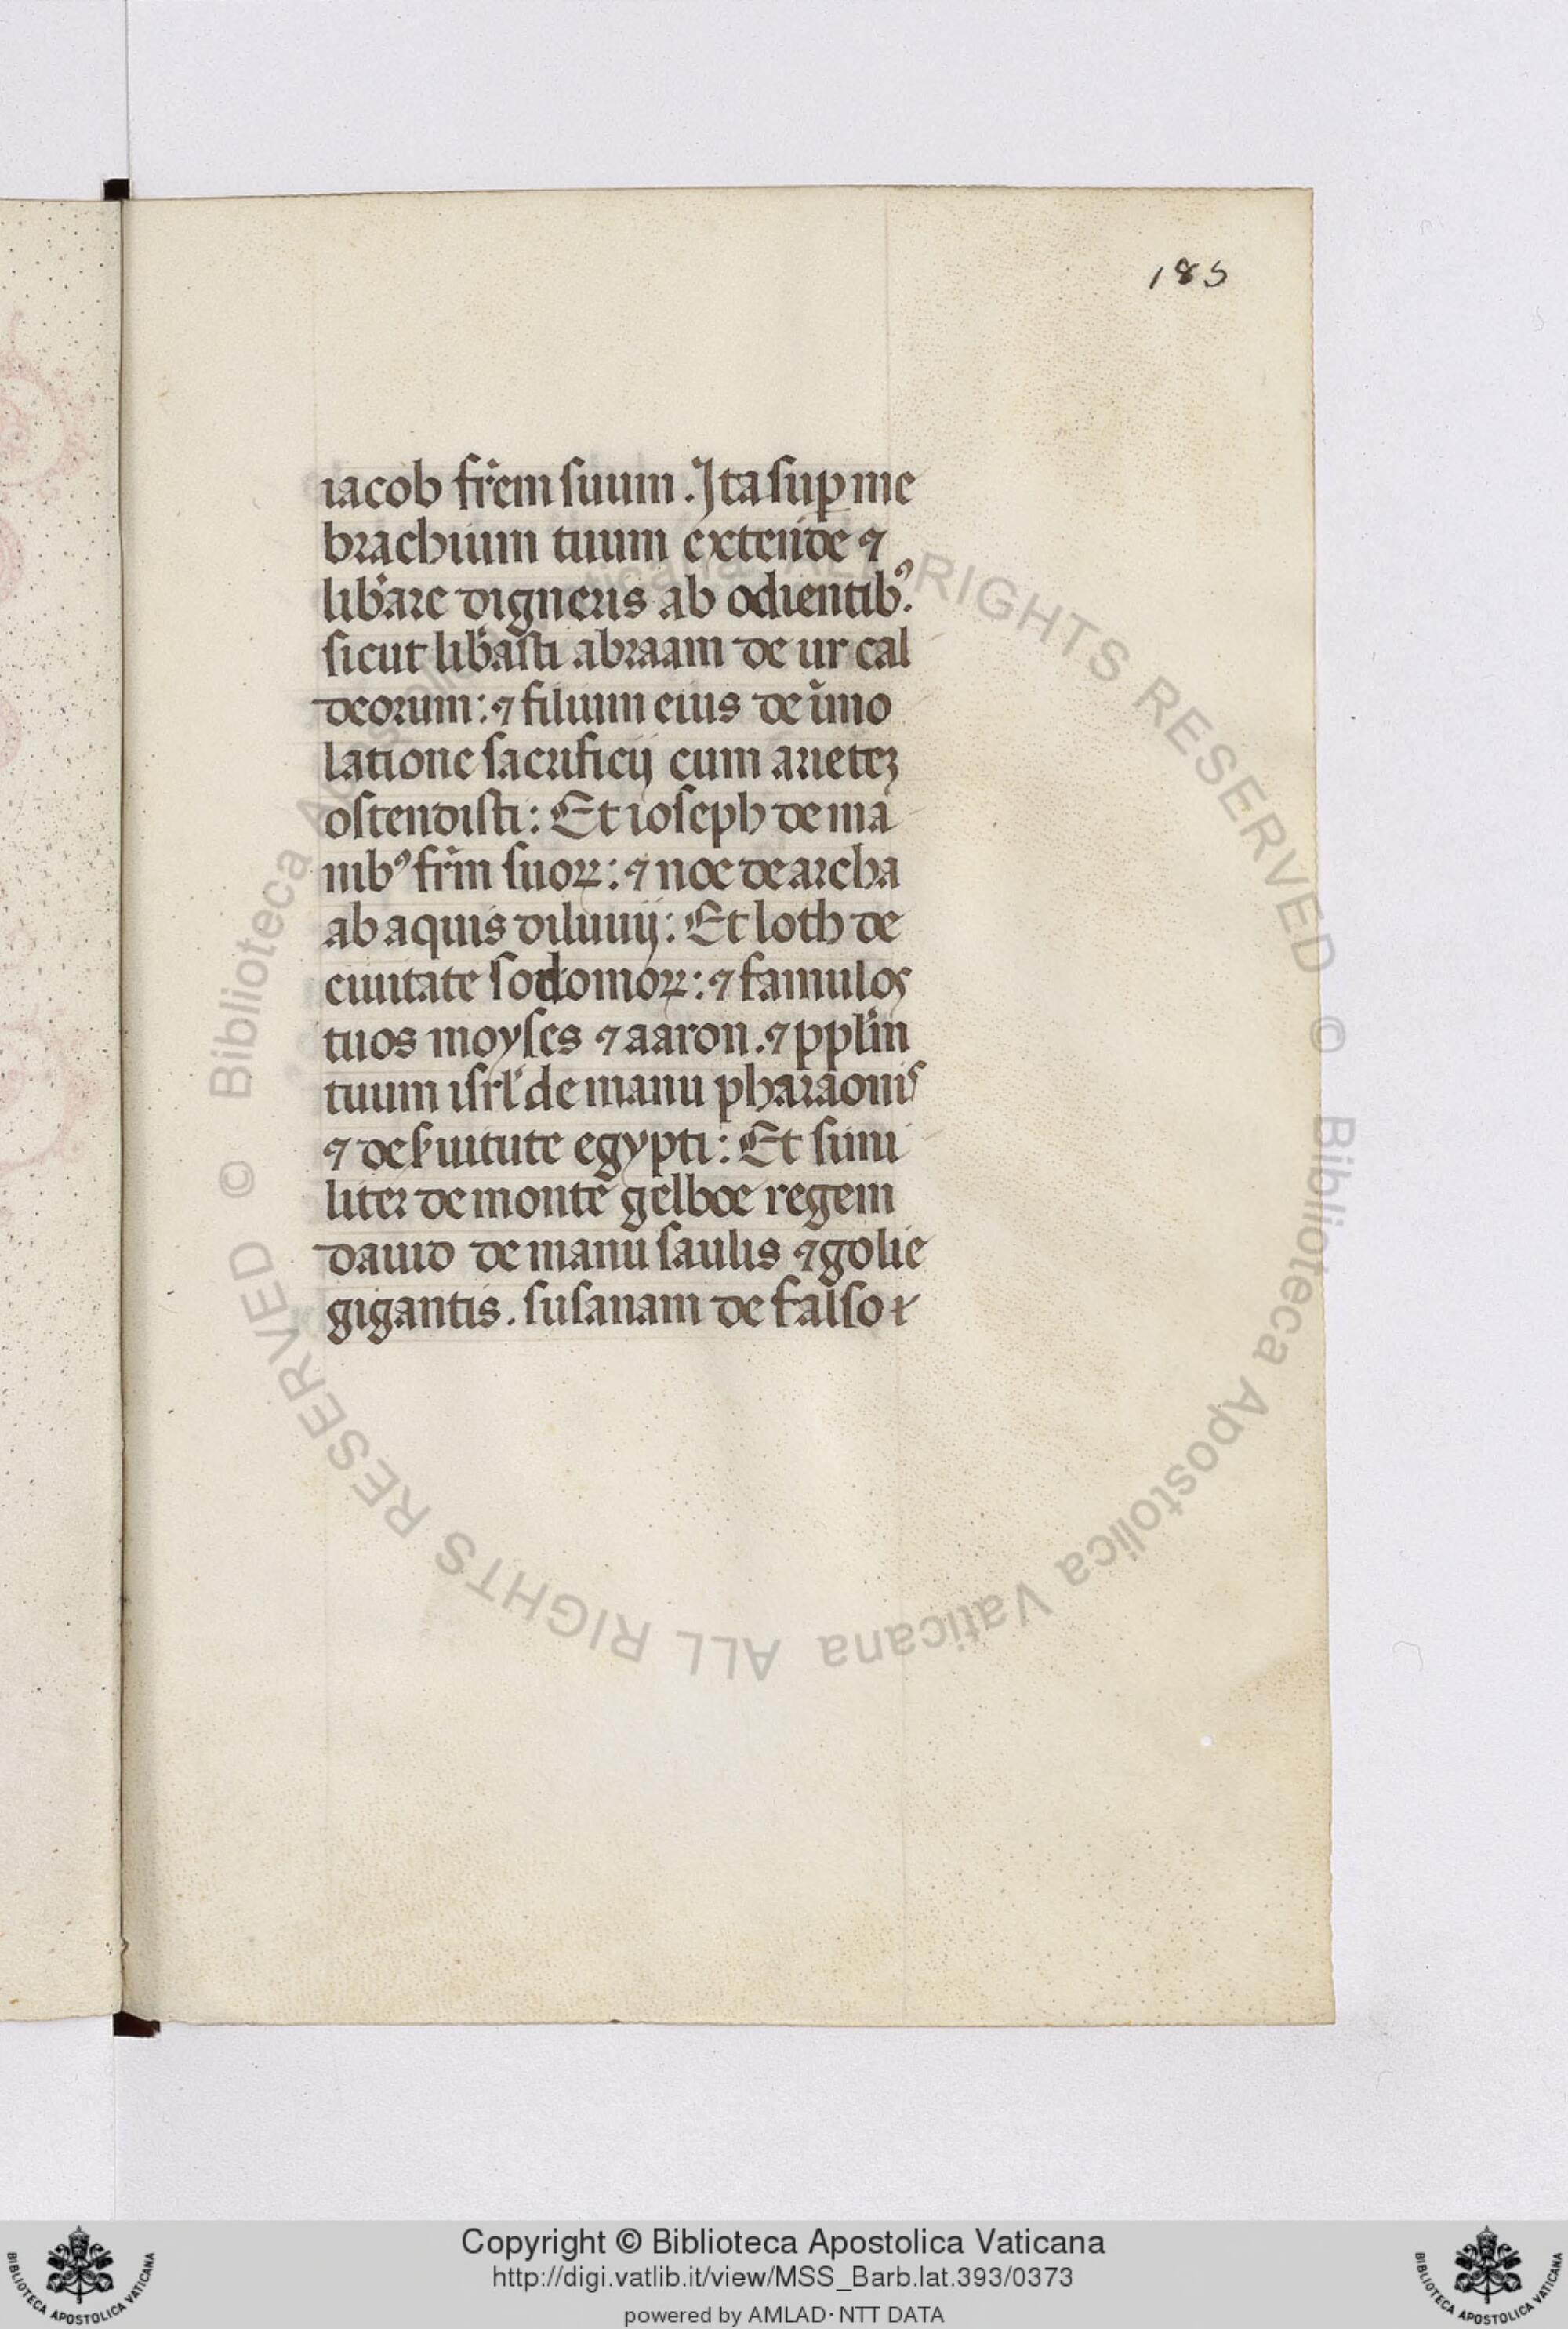 185
iacob fr̄em suum. Ita sup̱ me
brachium tuum extende ⁊
lib̾are digneris ab odientibꝰ.
sicut lib̾asti abraam de ur cal
deorum: ⁊ filium eius de īmo
latione sacrificij cum arieteꝫ
ostendisti: Et ioseph de ma
nibꝰ fr̄m suoꝝ: ⁊ noe de archa
ab aquis diluuij: Et loth de
ciuitate sodomoꝝ: ⁊ famulos
tuos moyses ⁊ aaron. ⁊ pplm̄
tuum isrl̾ de manu pharaonis
⁊ de s̾uitute egypti: Et simi
liter de monte gelboe regem
dauid de manu saulis ⁊ golie
gigantis. susanam de falso ⁊
© Biblioteca Apostolica Vaticana ALL RIGHTS RESERVED © Biblioteca Apostolica Vaticana ALL RIGHTS RESERVED
Copyright © Biblioteca Apostolica Vaticana
http://digi.vatlib.it/view/MSS_Barb.lat.393/0373
powered by AMLAD·NTT DATA
BIBLIOTECA APOSTOLICA VATICANA
BIBLIOTECA APOSTOLICA VATICANA